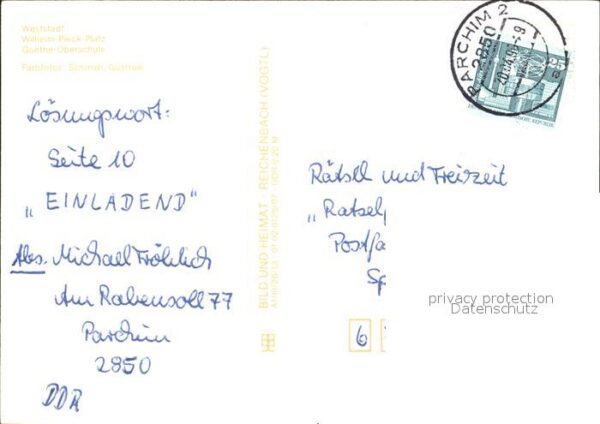 Weststadt
Wilhelm-Pieck-Platz
Goethe-Oberschule
Farbfotos: Schmidt, Güstrow
Lösungswort:
Seite 10
„EINLADEND"
Abs. Michael Fröhlich
Am Rabensoll 77
Parchim
2850
DDR
BILD UND HEIMAT REICHENBACH (VOGTL)
PARCHIM 2
2850
25
Rätsel und Freizeit
„Ratsel
Postfa
Sp
6
privacy protection
Datenschutz